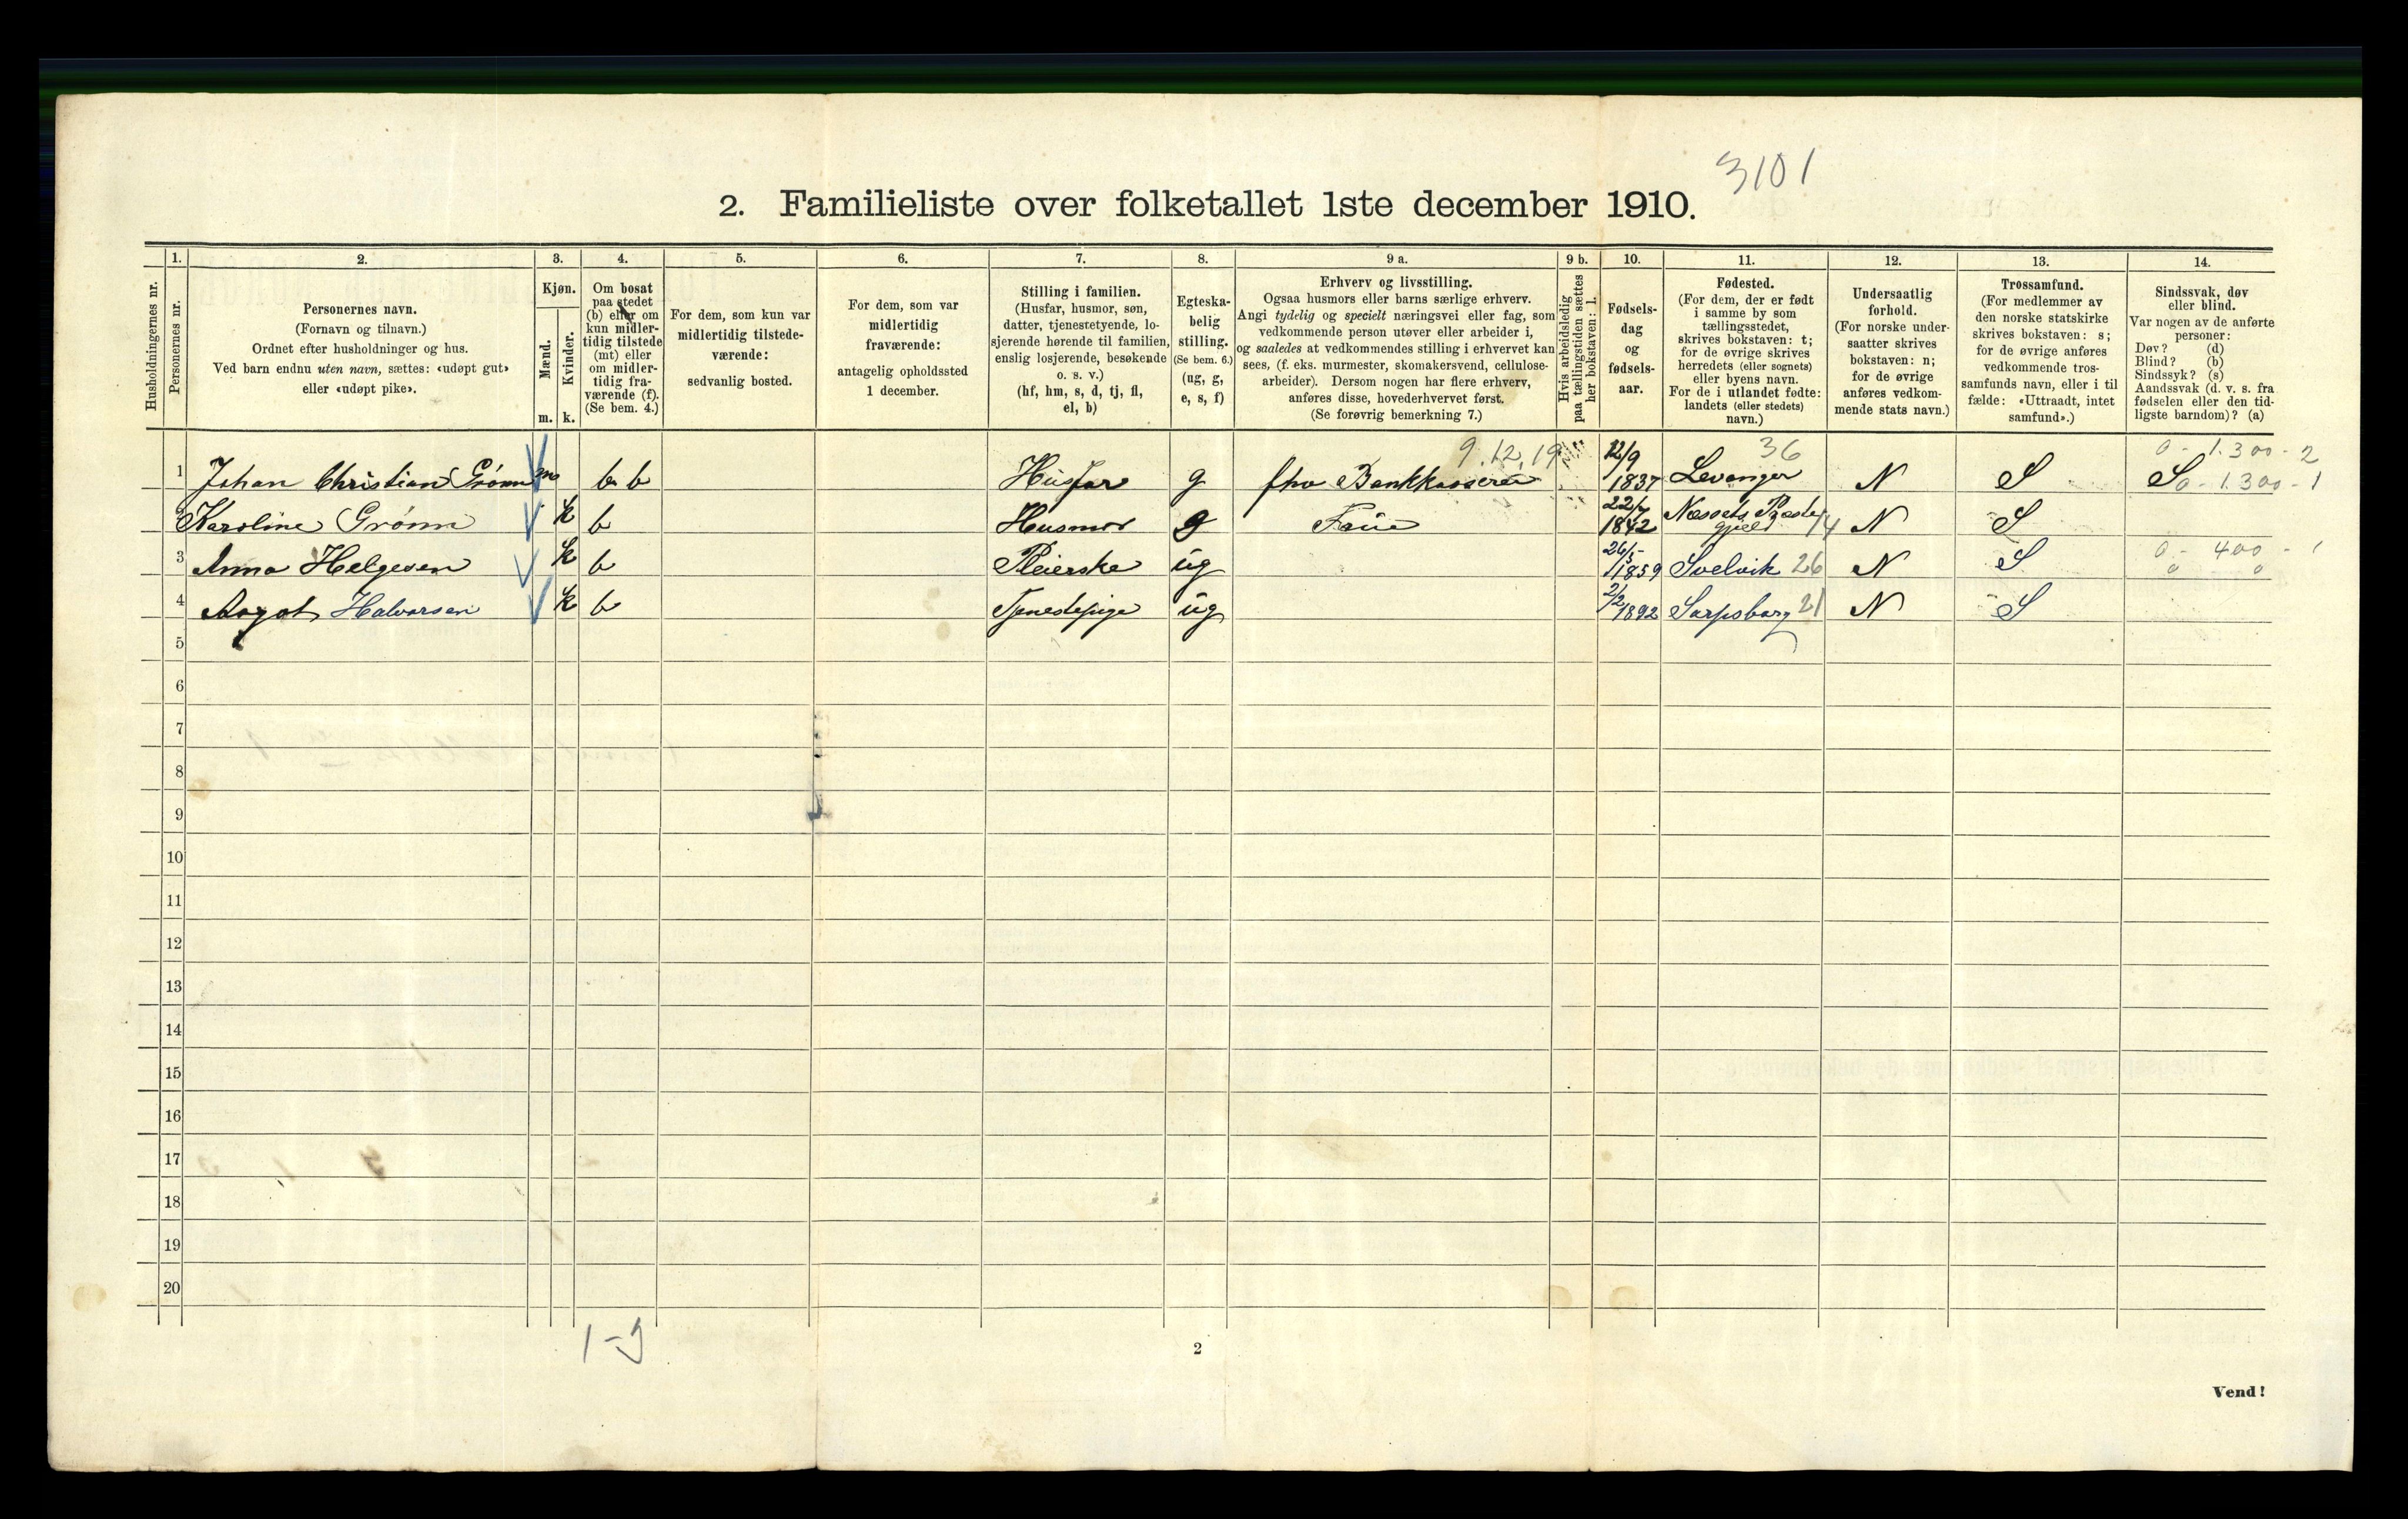 3101
2. Familieliste over folketallet 1ste december 1910.
1. 2. 3. 4. 5. 6. 7. 8. 9 a. 9 b. 10. 11. 12. 13. 14.
Husholdningernes nr.
Personernes nr.
Personernes navn.
(Fornavn og tilnavn.)
Ordnet efter husholdninger og hus.
Ved barn endnu uten navn, sættes: «udøpt gut»
eller «udøpt pike».
Kjøn.
Mænd.
Kvinder.
m. k.
Om bosat
paa stedet
(b) eller om
kun midler-
tidig tilstede
(mt) eller
om midler-
tidig fra-
værende (f).
(Se bem. 4.)
For dem, som kun var
midlertidig tilstede-
værende:
sedvanlig bosted.
For dem, som var
midlertidig
fraværende:
antagelig opholdssted
1 december.
Stilling i familien.
(Husfar, husmor, søn,
datter, tjenestetyende, lo-
sjerende hørende til familien,
enslig losjerende, besøkende
o. s. v.)
(hf, hm, s, d, tj, fl,
el, b)
Egteska-
belig
stilling.
(Se bem. 6.)
(ug, g,
e, s, f)
Erhverv og livsstilling.
Ogsaa husmors eller barns særlige erhverv.
Angi tydelig og specielt næringsvei eller fag, som
vedkommende person utøver eller arbeider i,
og saaledes at vedkommendes stilling i erhvervet kan
sees, (f. eks. murmester, skomakersvend, cellulose-
arbeider). Dersom nogen har flere erhverv,
anføres disse, hovederhvervet først.
(Se forøvrig bemerkning 7.)
Hvis arbeidsledig
paa tællingstiden sættes
her bokstaven: l.
Fødsels-
dag
og
fødsels-
aar.
Fødested.
(For dem, der er født
i samme by som
tællingsstedet,
skrives bokstaven: t;
for de øvrige skrives
herredets (eller sognets)
eller byens navn.
For de i utlandet fødte:
landets (eller stedets)
navn.)
Undersaatlig
forhold.
(For norske under-
saatter skrives
bokstaven: n;
for de øvrige
anføres vedkom-
mende stats navn.)
Trossamfund.
(For medlemmer av
den norske statskirke
skrives bokstaven: s;
for de øvrige anføres
vedkommende tros-
samfunds navn, eller i til
fælde: «Uttraadt, intet
samfund».)
Sindssvak, døv
eller blind.
Var nogen av de anførte
personer:
Døv? (d)
Blind? (b)
Sindssyk? (s)
Aandssvak (d. v. s. fra
fødselen eller den tid-
ligste barndom)? (a)
9.12.19 36 0 - 1.300 - 2
1 Johan Christian Grønn m b b Husfar g fhv Bankkasserer 12/9 1837 Levanger N S S 0 - 1.300 - 1
2 Karoline Grønn k b Husmor g Frue 22/7 1842 Nessets Præste gjeld 14 N S
3 Anna Helgesen k b Pleierske ug 26/5 1859 Svelvik 26 N S 0 - 400 - 1
0 0
4 Aagot Halvorsen k b Tjenestepige ug 2/2 1892 Sarpsborg 21 N S
5
6
7
8
9
10
11
12
13
14
15
16
17
18
19
20
1-3
2
Vend!